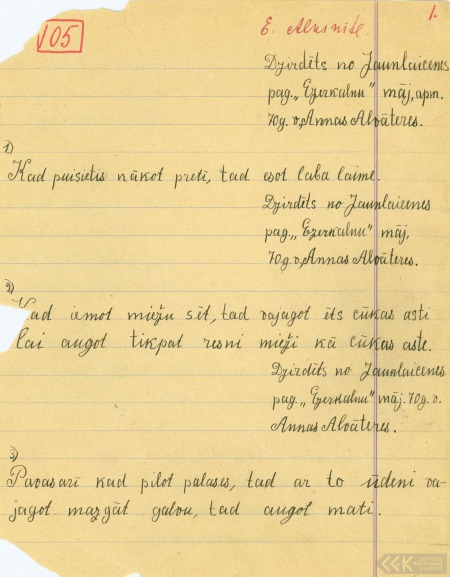 105
E. Alksnīte.
1.
Dzirdēts no Jaunlaicenes
pag. „Ezerkalnu" māj, apm.
70g. v, Annas Alvāteres.
1)
Kad puisietis nākot pretī, tad esot laba laime.
Dzirdēts no Jaunlaicenes
pag. „Ezerkalnu" māj,
70.g.v, Annas Alvāteres.
2)
Kad iemot miežu sēt, tad vajagot ēts cūkas asti
lai augot tikpat resni mieži kā cūkas aste.
Dzirdēts no Jaunlaicenes
pag. „Ezerkalnu" māj. 70g. v.
Annas Alvāteres.
3)
Pavasarī kad pilot palases, tad ar to ūdeni va-
jagot mazgāt galvu, tad augot mati.
LATVIEŠU
FOLKLORAS
KRĀTUVE